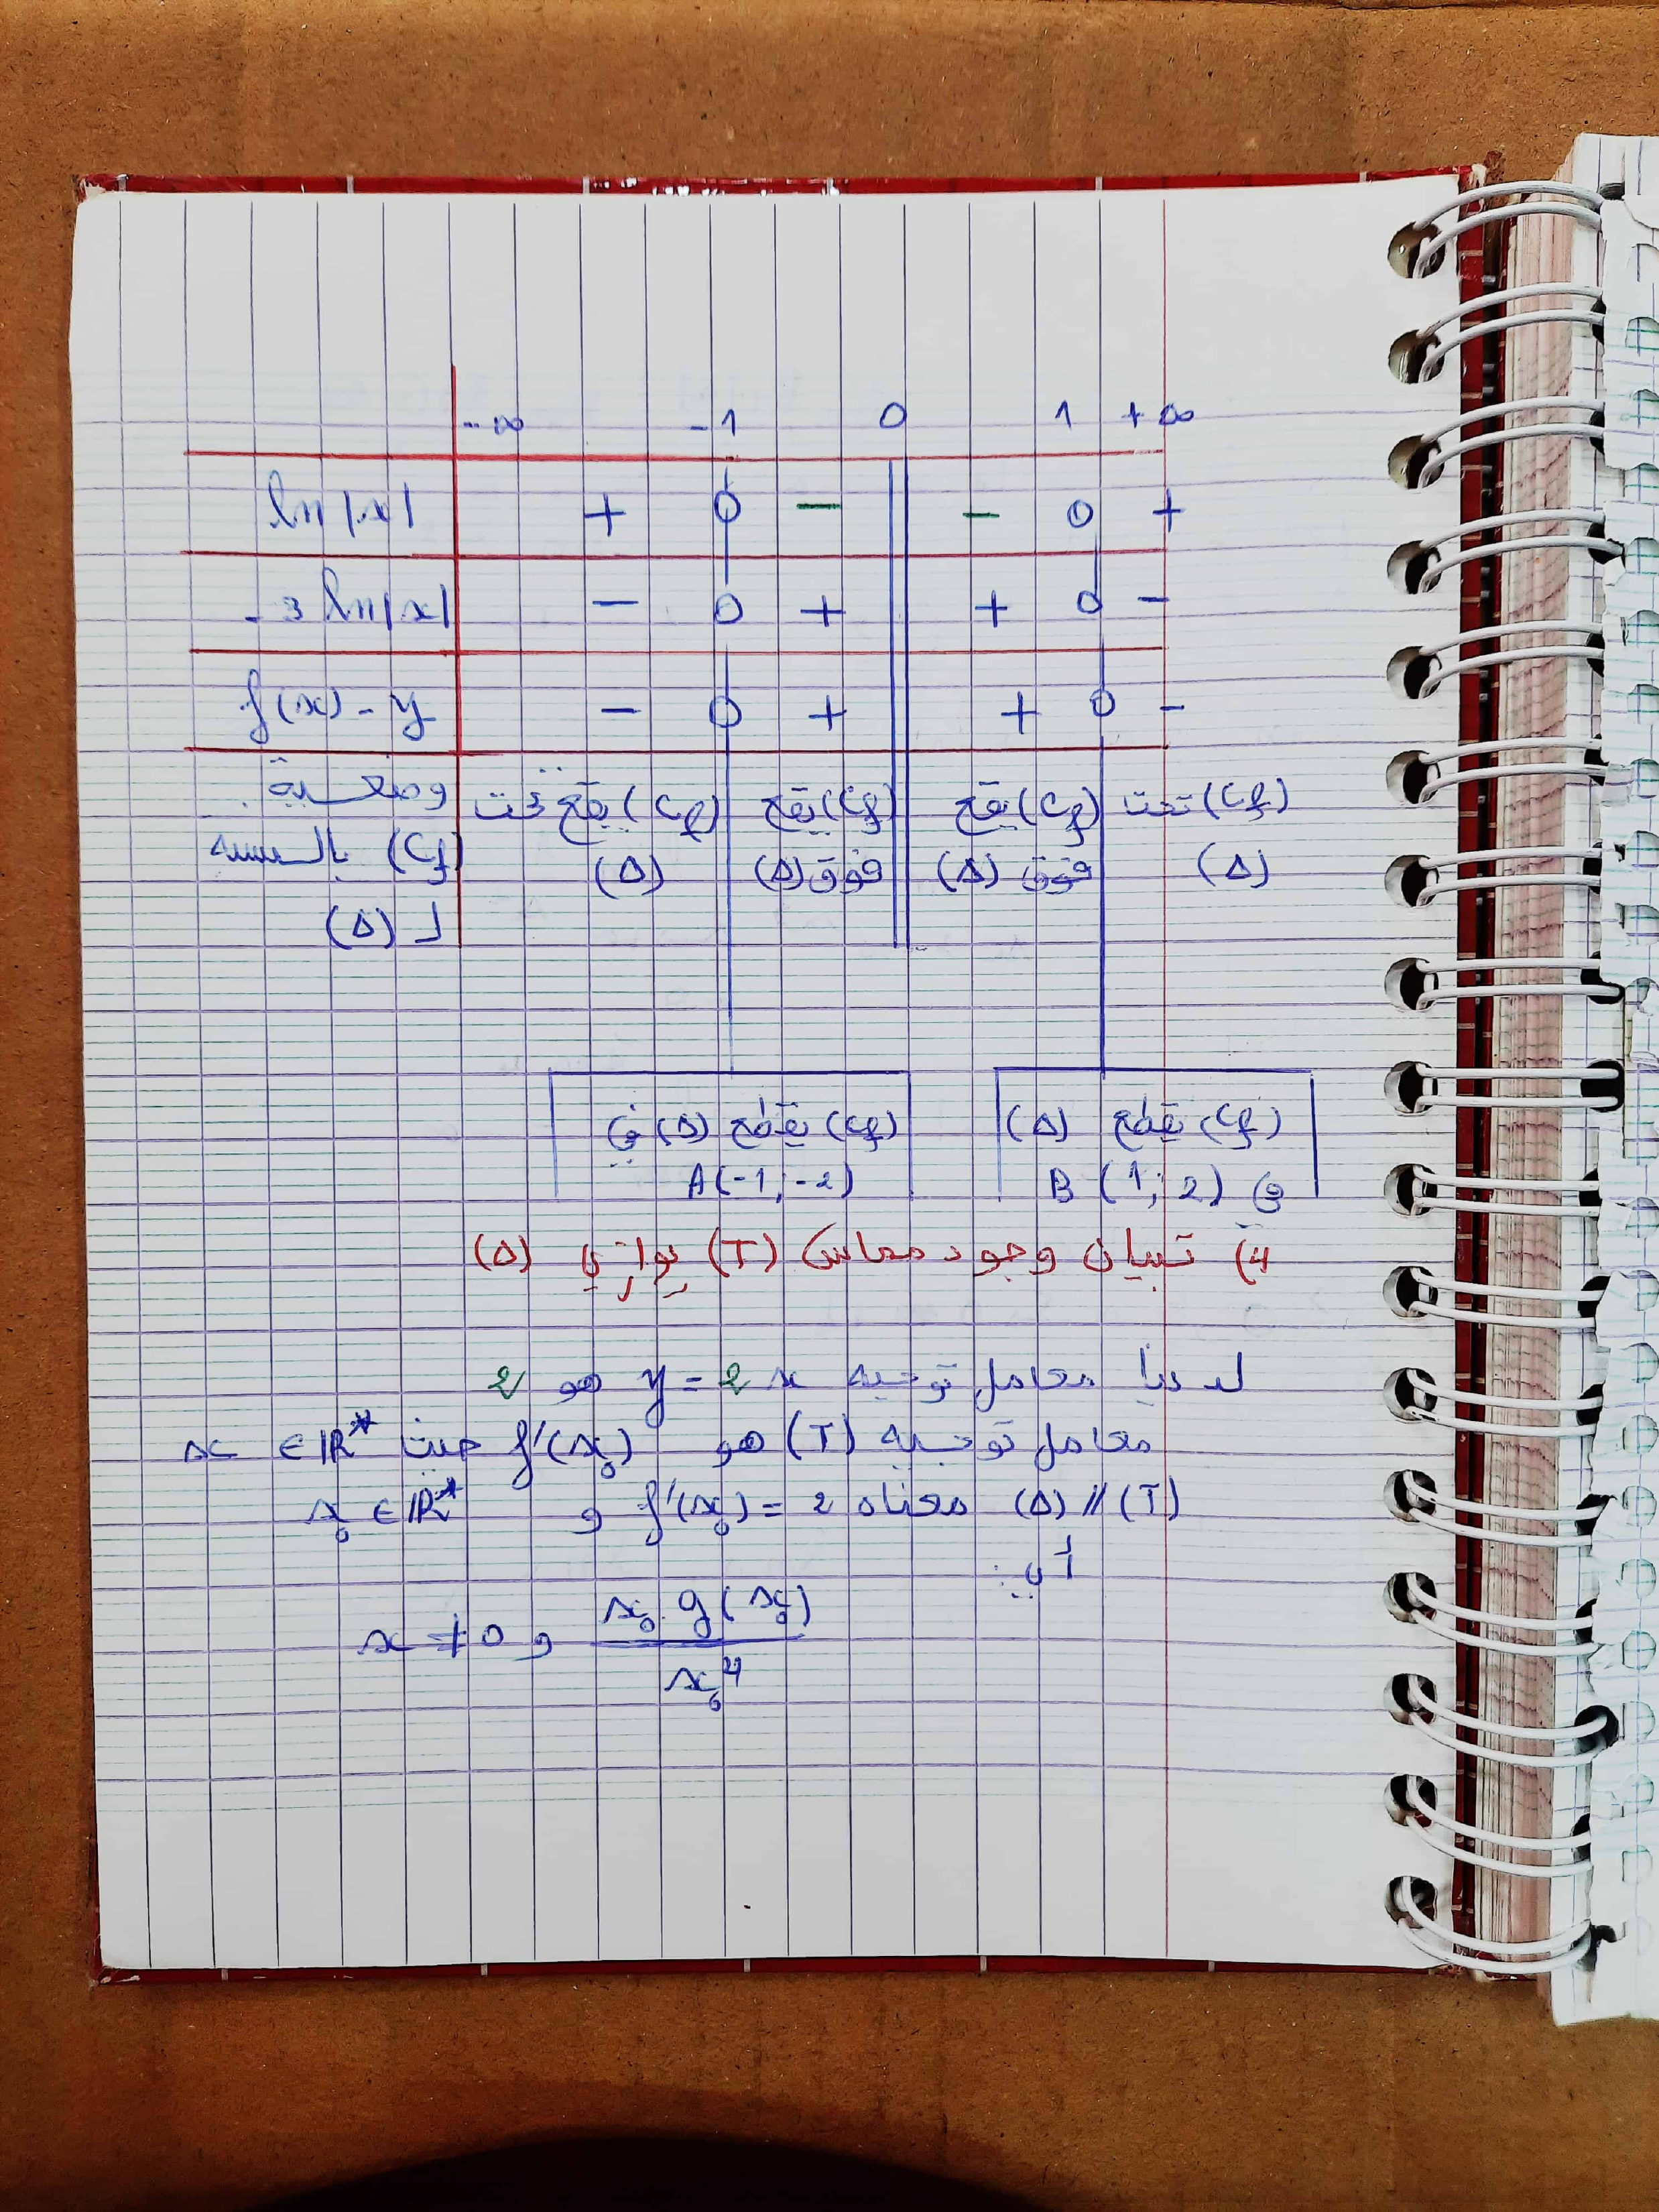 -∞ -1 0 1 +∞
ln|x| + 0 − − 0 +
-3 ln|x| − 0 + + 0 −
f(x) - y − 0 + + 0 −
وضعية (Cf) يقع تحت (Cf) يقع (Cf) يقع (Cf) تحت
(Cf) بالنسبة (Δ) فوق (Δ) فوق (Δ) (Δ)
لـ (Δ)
(Cf) يقطع (Δ) في
A(-1; -2)
(Cf) يقطع (Δ)
في B (1; 2)
4) تبيان وجود مماس (T) يوازي (Δ)
لدينا معامل توجيه y = 2x هو 2
معامل توجيه (T) هو f'(x₀) حيث x ∈ ℝ*
(T) // (Δ) معناه f'(x₀) = 2 و x₀ ∈ ℝ*
أي:
x₀ g(x₀) / x₀⁴ و x ≠ 0